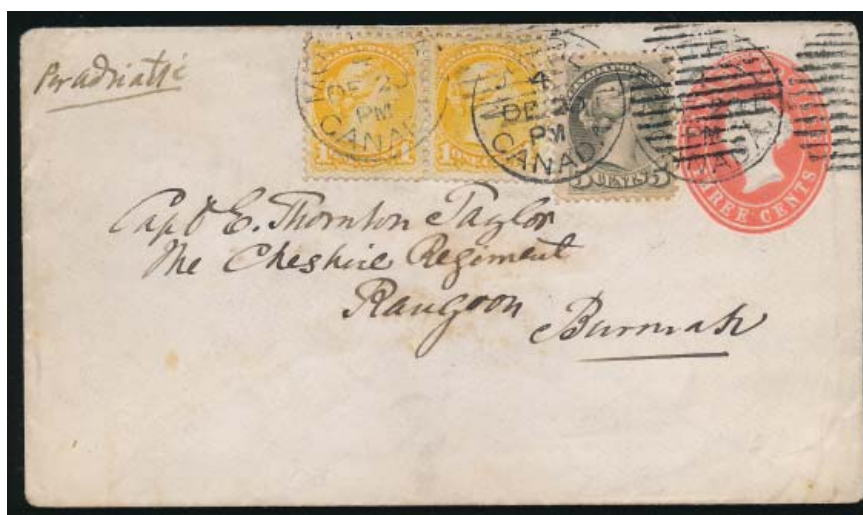 Per Adriatic
DE 20
PM
CANADA
4
DE 20
PM
CANADA
PM
1 ONE CENT 1
5 CENTS 5
THREE CENTS
Capt E. Thornton Taylor
The Cheshire Regiment
Rangoon
Burmah